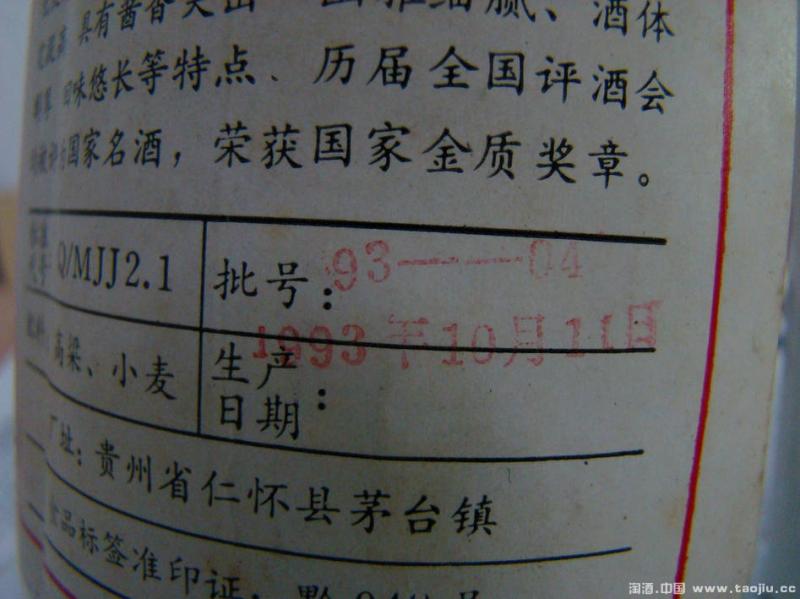 具有酱香突出 幽雅细腻、酒体
回味悠长等特点、历届全国评酒会
国家名酒，荣获国家金质奖章。
标准代号 Q/MJJ2.1 批号：93———04
高梁、小麦 生产日期： 1993年10月11日
厂址：贵州省仁怀县茅台镇
食品标签准印证：黔
淘酒.中国 www.taojiu.cc